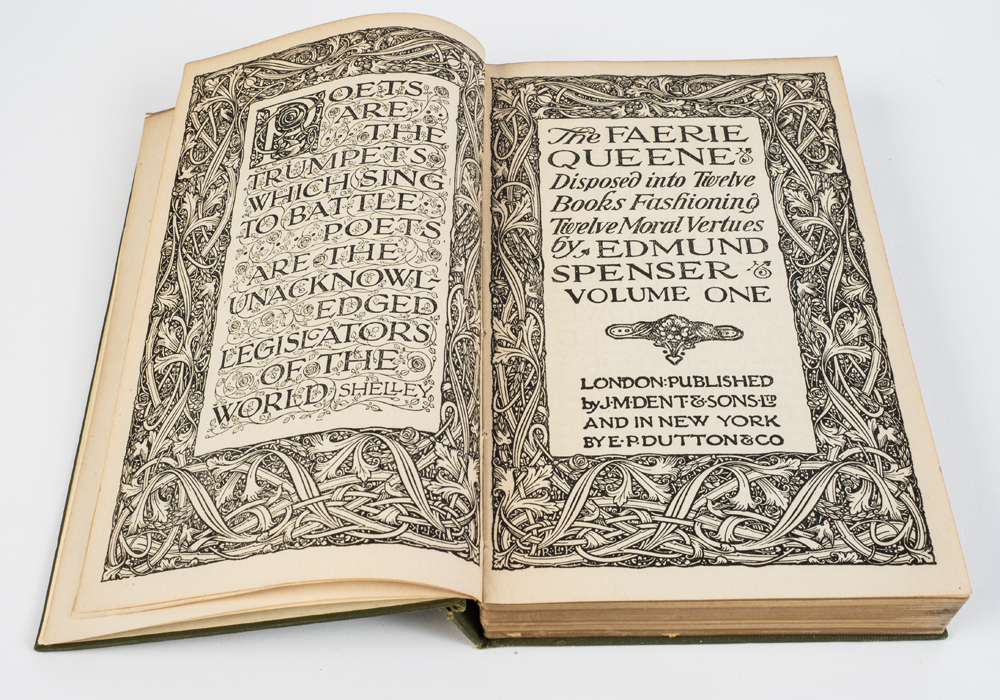 POETS
ARE
THE
TRUMPETS
WHICH SING
TO BATTLE
POETS
ARE THE
UNACKNOWL-
EDGED
LEGISLATORS
OF THE
WORLD SHELLEY
The FAERIE
QUEENE
Disposed into Twelve
Books Fashioning
Twelve Moral Vertues
by EDMUND
SPENSER
VOLUME ONE
LONDON: PUBLISHED
by J. M. DENT & SONS LTD
AND IN NEW YORK
BY E. P. DUTTON & CO